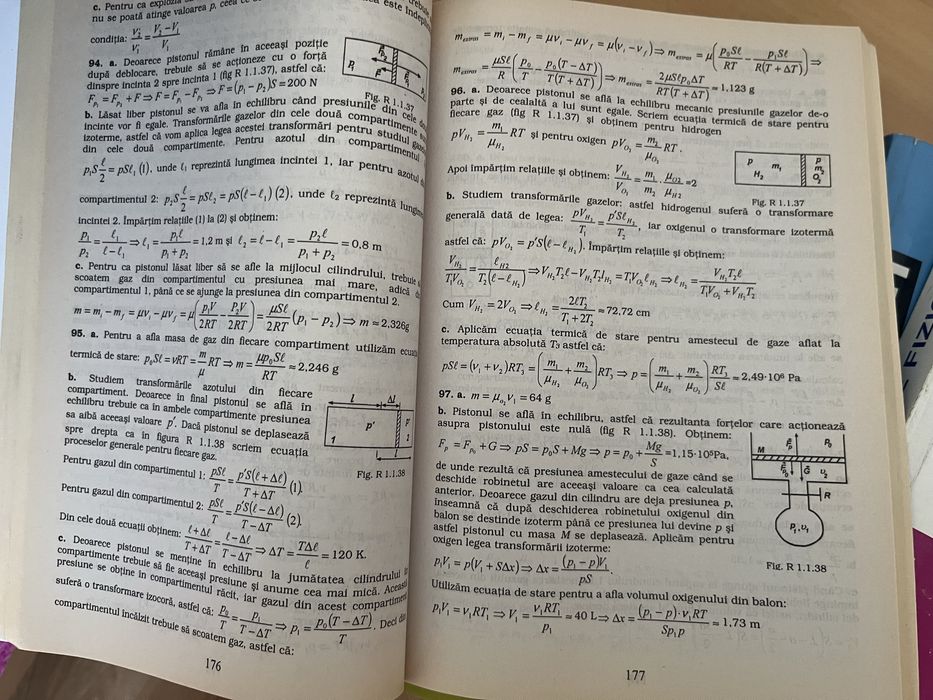 c. Pentru ca explozia să
nu se poată atinge valoarea p, ceea ce
condiția: V₂/V₁ = (V₂ – V₁)/V₁
este
94. a. Deoarece pistonul rămâne în aceeași poziție
după deblocare, trebuie să se acționeze cu o forță
dinspre incinta 2 spre incinta 1 (fig R 1.1.37), astfel că:
F_p₁ = F_p₂ + F ⇒ F = F_p₁ – F_p₂ ⇒ F = (p₁ – p₂)S = 200 N
Fig. R 1.1.37
b. Lăsat liber pistonul se va afla în echilibru când presiunile din cele două
incinte vor fi egale. Transformările gazelor din cele două compartimente sunt
izoterme, astfel că vom aplica legea acestei transformări pentru studiul gazelor
din cele două compartimente. Pentru azotul din compartimentul
p₁S ℓ/2 = pSℓ₁ (1), unde ℓ₁ reprezintă lungimea incintei 1, iar pentru azotul
compartimentul 2: p₂S ℓ/2 = pSℓ₂ = pS(ℓ – ℓ₁) (2), unde ℓ₂ reprezintă lungimea
incintei 2. Împărțim relațiile (1) la (2) și obținem:
p₁/p₂ = ℓ₁/(ℓ – ℓ₁) ⇒ ℓ₁ = p₁ℓ/(p₁ + p₂) = 1,2 m și ℓ₂ = ℓ – ℓ₁ = p₂ℓ/(p₁ + p₂) = 0,8 m
c. Pentru ca pistonul lăsat liber să se afle la mijlocul cilindrului, trebuie
scoatem gaz din compartimentul cu presiunea mai mare, adică din
compartimentul 1, până ce se ajunge la presiunea din compartimentul 2.
m = m_i – m_f = μν_i – μν_f = μ(p₁V/2RT – p₂V/2RT) = μSℓ/2RT (p₁ – p₂) ⇒ m ≈ 2,326g
95. a. Pentru a afla masa de gaz din fiecare compartiment utilizăm ecuația
termică de stare: p₀Sℓ = νRT = m/μ RT ⇒ m = μp₀Sℓ/RT ≈ 2,246 g
b. Studiem transformările azotului din fiecare
compartiment. Deoarece în final pistonul se află în
echilibru trebuie ca în ambele compartimente presiunea
sa aibă aceeași valoare p'. Dacă pistonul se deplasează
spre drepta ca în figura R 1.1.38 scriem ecuația
proceselor generale pentru fiecare gaz.
l Δl
p' p'
1 2
Fig. R 1.1.38
Pentru gazul din compartimentul 1: pSℓ/T = p'S(ℓ + Δℓ)/(T + ΔT) (1).
Pentru gazul din compartimentul 2: pSℓ/T = p'S(ℓ – Δℓ)/(T – ΔT) (2).
Din cele două ecuații obținem: (ℓ + Δℓ)/(T + ΔT) = (ℓ – Δℓ)/(T – ΔT) ⇒ ΔT = TΔℓ/ℓ = 120 K.
c. Deoarece pistonul se menține în echilibru la jumătatea cilindrului în
compartimente trebuie să fie aceeași presiune și anume cea mai mică. Această
presiune se obține în compartimentul răcit, iar gazul din acest compartiment
suferă o transformare izocoră, astfel că: p₀/T = p₁/(T – ΔT) ⇒ p₁ = p₀(T – ΔT)/T. Deci din
compartimentul încălzit trebuie să scoatem gaz, astfel că:
176
m_extras = m_i – m_f = μν_i – μν_f = μ(ν_i – ν_f) ⇒ m_extras = μ(p₀Sℓ/RT – p₁Sℓ/R(T + ΔT)) ⇒
m_extras = μSℓ/R (p₀/T – p₀(T – ΔT)/T(T + ΔT)) ⇒ m_extras = 2μSℓp₀ΔT/RT(T + ΔT) ≈ 1,123 g
96. a. Deoarece pistonul se află la echilibru mecanic presiunile gazelor de-o
parte și de cealaltă a lui sunt egale. Scriem ecuația termică de stare pentru
fiecare gaz (fig R 1.1.37) și obținem pentru hidrogen
pV_H₂ = m₁/μ_H₂ RT și pentru oxigen pV_O₂ = m₂/μ_O₂ RT.
Apoi împărțim relațiile și obținem: V_H₂/V_O₂ = m₁/m₂ · μ_O₂/μ_H₂ = 2
p m₁ H₂
p m₂ O₂
Fig. R 1.1.37
b. Studiem transformările gazelor; astfel hidrogenul suferă o transformare
generală dată de legea: pV_H₂/T₁ = p'Sℓ_H₂/T₂, iar oxigenul o transformare izotermă
astfel că: pV_O₂ = p'S(ℓ – ℓ_H₂). Împărțim relațiile și obținem:
V_H₂/T₁V_O₂ = ℓ_H₂/T₂(ℓ – ℓ_H₂) ⇒ V_H₂T₂ℓ – V_H₂T₂l_H₂ = T₁V_O₂ℓ_H₂ ⇒ ℓ_H₂ = V_H₂T₂ℓ/(T₁V_O₂ + V_H₂T₂)
Cum V_H₂ = 2V_O₂ ⇒ ℓ_H₂ = 2ℓT₂/(T₁ + 2T₂) ≈ 72,72 cm
c. Aplicăm ecuația termică de stare pentru amestecul de gaze aflat la
temperatura absolută T₃ astfel că:
pSℓ = (ν₁ + ν₂)RT₃ = (m₁/μ_H₂ + m₂/μ_O₂)RT₃ ⇒ p = (m₁/μ_H₂ + m₂/μ_O₂) RT₃/Sℓ ≈ 2,49·10⁶ Pa
97. a. m = μ_o₂ν₁ = 64 g
b. Pistonul se află în echilibru, astfel că rezultanta forțelor care acționează
asupra pistonului este nulă (fig R 1.1.38). Obținem:
F_p = F_p₀ + G ⇒ pS = p₀S + Mg ⇒ p = p₀ + Mg/S = 1,15·10⁵Pa,
de unde rezultă că presiunea amestecului de gaze când se
deschide robinetul are aceeași valoare ca cea calculată
anterior. Deoarece gazul din cilindru are deja presiunea p,
înseamnă că după deschiderea robinetului oxigenul din
balon se destinde izoterm până ce presiunea lui devine p și
astfel pistonul cu masa M se deplasează. Aplicăm pentru
oxigen legea transformării izoterme:
M p₀ G R p₁,υ₁
Fig. R 1.1.38
p₁V₁ = p(V₁ + SΔx) ⇒ Δx = (p₁ – p)V₁/pS.
Utilizăm ecuația de stare pentru a afla volumul oxigenului din balon:
p₁V₁ = ν₁RT₁ ⇒ V₁ = ν₁RT₁/p₁ ≈ 40 L ⇒ Δx = (p₁ – p)·ν₁RT/Sp₁p ≈ 1,73 m
177
FIZI